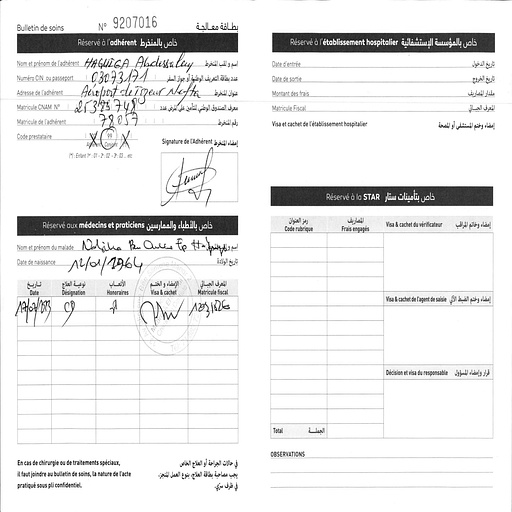 Bulletin de soins N° 9207016 بطاقة معالجة
Réservé à l'adhérent خاص بالمنخرط
Nom et prénom de l'adhérent HAGUIGA Abdessalay اسم و لقب المنخرط
Numéro CIN ou passeport 03073171 عدد بطاقة التعريف الوطنية أو جواز السفر
Adresse de l'adhérent Aéroport de Tozeur Nefta عنوان المنخرط
Matricule CNAM N° 25375748
Matricule de l'adhérent 78057 رقم المنخرط
Code prestataire
Signature de l'Adhérent إمضاء المنخرط
Réservé aux médecins et praticiens خاص بالأطباء والممارسين
Nom et prénom du malade
Date de naissance 12/01/1964 تاريخ الولادة
تاريخ نوعية العلاج الأتعاب الإمضاء و الختم المعرف الجبائي
Date Désignation Honoraires Visa & cachet Matricule fiscal
En cas de chirurgie ou de traitements spéciaux,
il faut joindre au bulletin de soins, la nature de l'acte
pratiqué sous pli confidentiel.
في حالات الجراحة أو العلاج الخاص
يجب مصاحبة بطاقة العلاج، بنوع العمل المنجز،
في ظرف سري.
Réservé à l'établissement hospitalier خاص بالمؤسسة الإستشفائية
Date d'entrée تاريخ الدخول
Date de sortie تاريخ الخروج
Montant des frais مقدار المصاريف
Matricule Fiscal المعرف الجبائي
Visa et cachet de l'établissement hospitalier إمضاء وختم المستشفى أو المصحة
Réservé à la STAR خاص بتأمينات ستار
رمز العنوان المصاريف
Code rubrique Frais engagés
Visa & cachet du vérificateur إمضاء وخاتم المراقب
Visa & cachet de l'agent de saisie إمضاء وختم الضبط الآلي
Décision et visa du responsable قرار وإمضاء المسؤول
Total الجملة
OBSERVATIONS